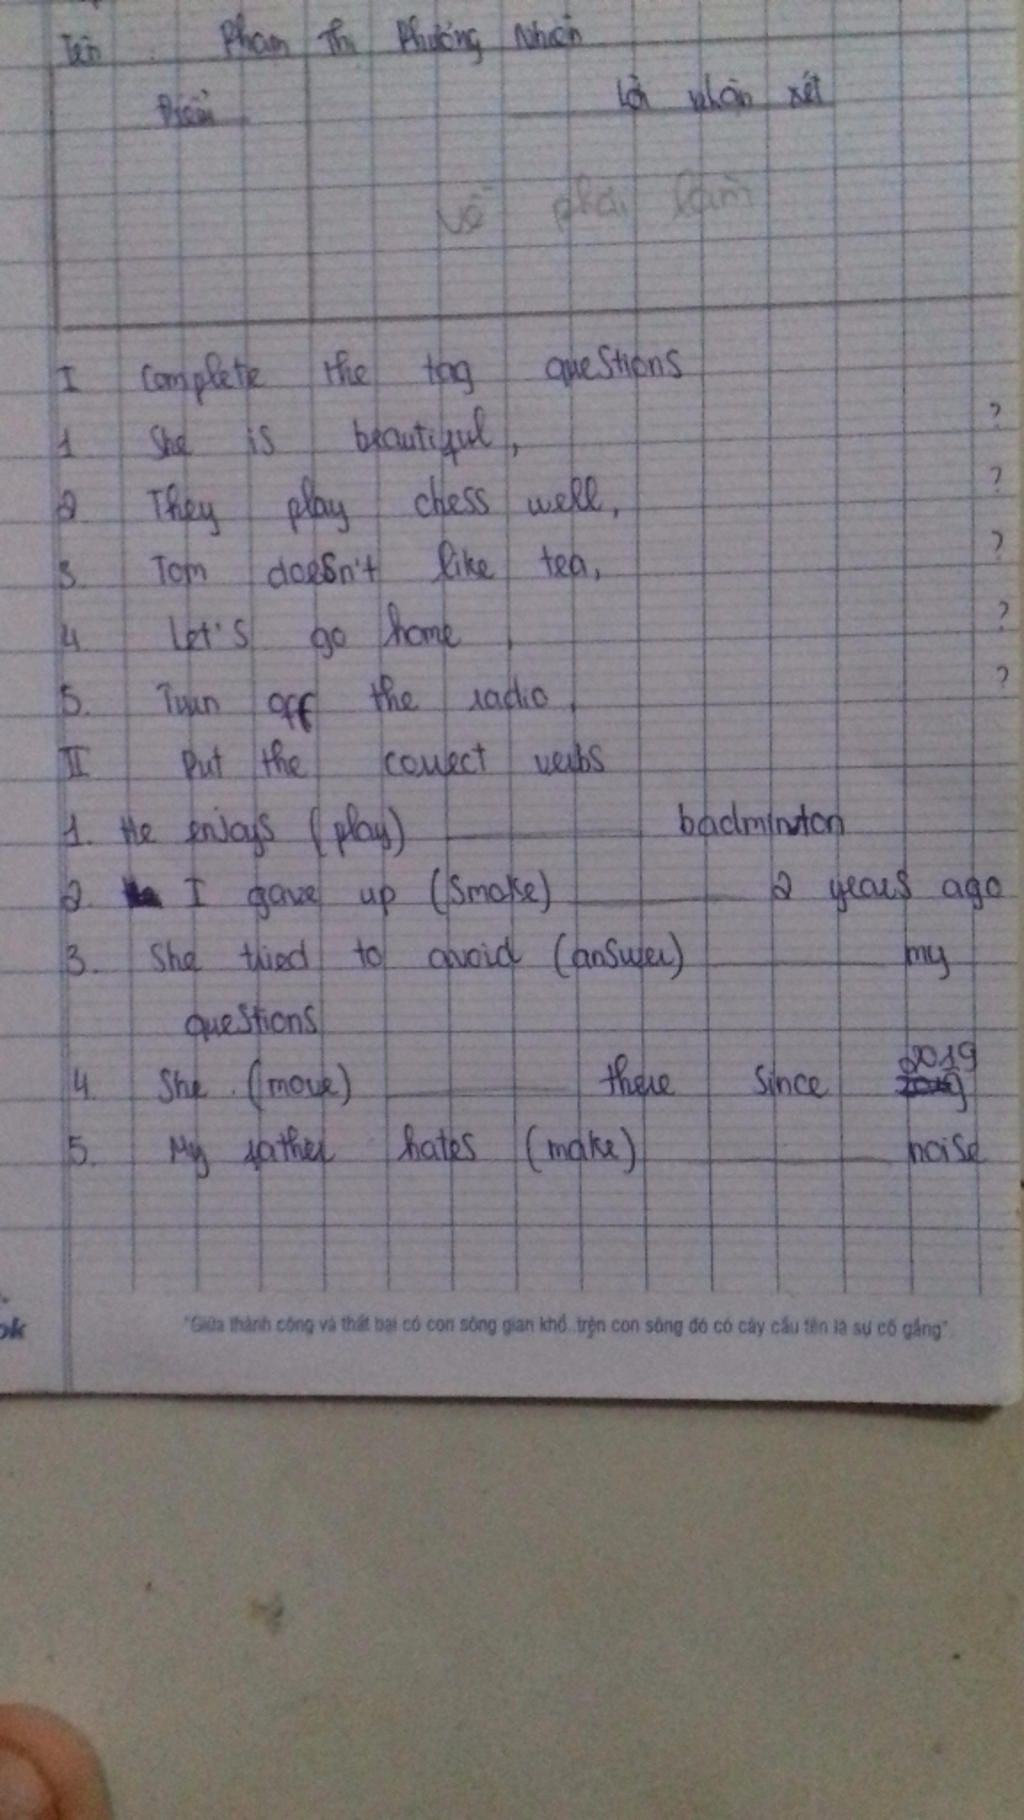 Tên Phạm Thị Phương Nhiên
Điểm Lời nhận xét
Vô phải làm
I Complete the tag questions
1 She is beautiful, ?
2 They play chess well, ?
3. Tom doesn't like tea, ?
4 Let's go home , ?
5. Turn off the radio , ?
II Put the correct verbs
1. He enjoys (play) badminton
2. I gave up (Smoke) 2 years ago
3. She tried to avoid (answer) my
questions
4. She (move) there since 2019
5. My father hates (make) noise
"Giữa thành công và thất bại có con sông gian khổ, trên con sông đó có cây cầu tên là sự cố gắng"
ok